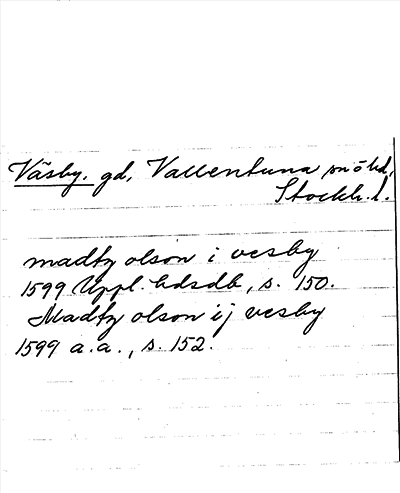 Väsby. gd, Vallentuna sn o hd,
Stockh. l.
madtz olson i vesby
1599 Uppl. hdsdb, s. 150.
Madtz olson ij vesby
1599 a.a., s. 152.